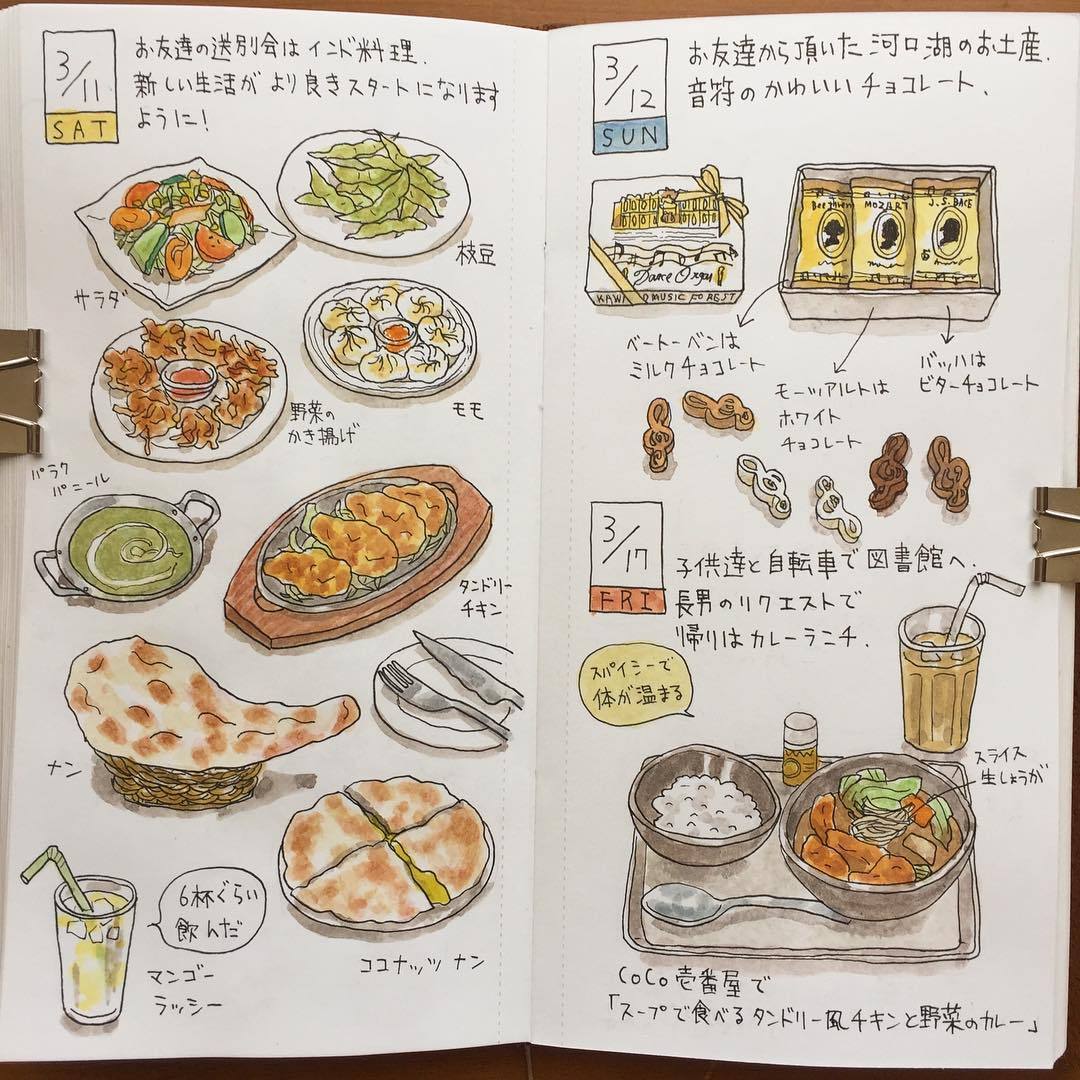 3/11
SAT
お友達の送別会はインド料理.
新しい生活がより良きスタートになります
ように!
サラダ
枝豆
野菜の
かき揚げ
モモ
パラク
パニール
タンドリー
チキン
ナン
6杯ぐらい
飲んだ
マンゴー
ラッシー
ココナッツ ナン
3/12
SUN
お友達から頂いた河口湖のお土産.
音符のかわいいチョコレート.
Dance Organ
MUSIC FOREST
Beethven
MOZART
J.S.BACE
ベートーベンは
ミルクチョコレート
モーツアルトは
ホワイト
チョコレート
バッハは
ビターチョコレート
3/17
FRI
子供達と自転車で図書館へ.
長男のリクエストで
帰りはカレーランチ.
スパイシーで
体が温まる
スライス
生しょうが
CoCo壱番屋で
「スープで食べるタンドリー風チキンと野菜のカレー」